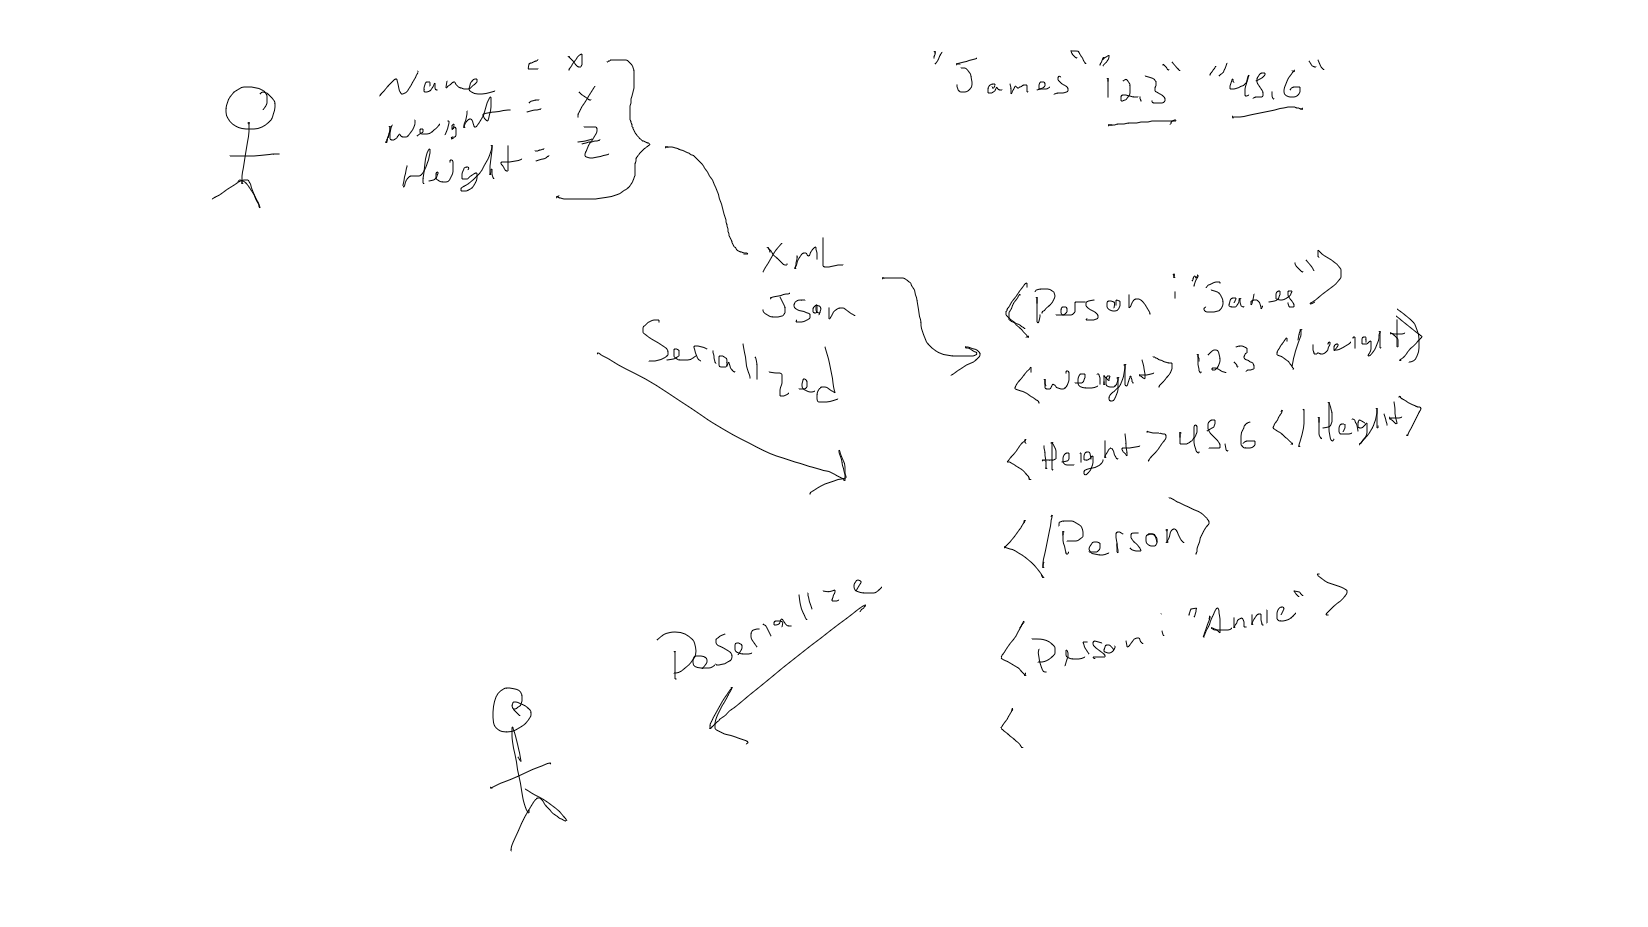 Name = x
Weight = y
Height = Z
"James" "12.3" "45.6"
XML
Json
Serialized
<Person : "James">
<weight> 12.3 </weight>
<Height> 45.6 </Height>
</Person>
Deserialize
<Person : "Annie">
<